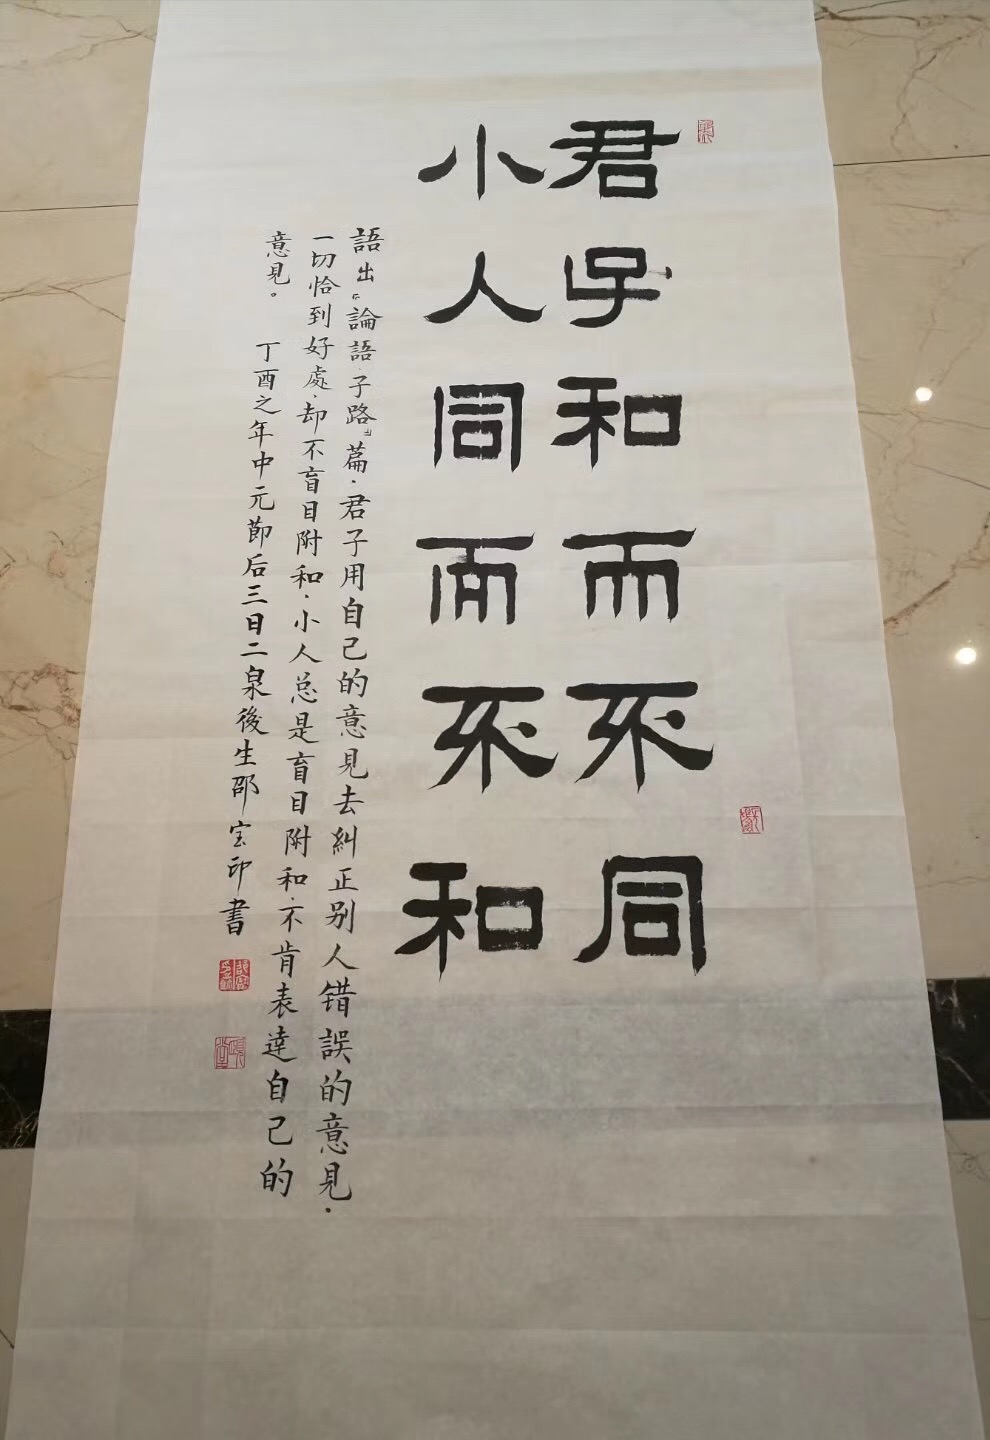 君子和而不同
小人同而不和
語出《論語·子路》篇·君子用自己的意見去糾正别人錯誤的意見·
一切恰到好處·却不盲目附和·小人总是盲目附和·不肯表達自己的
意見。 丁酉之年中元節后三日二泉後生邵宝印書